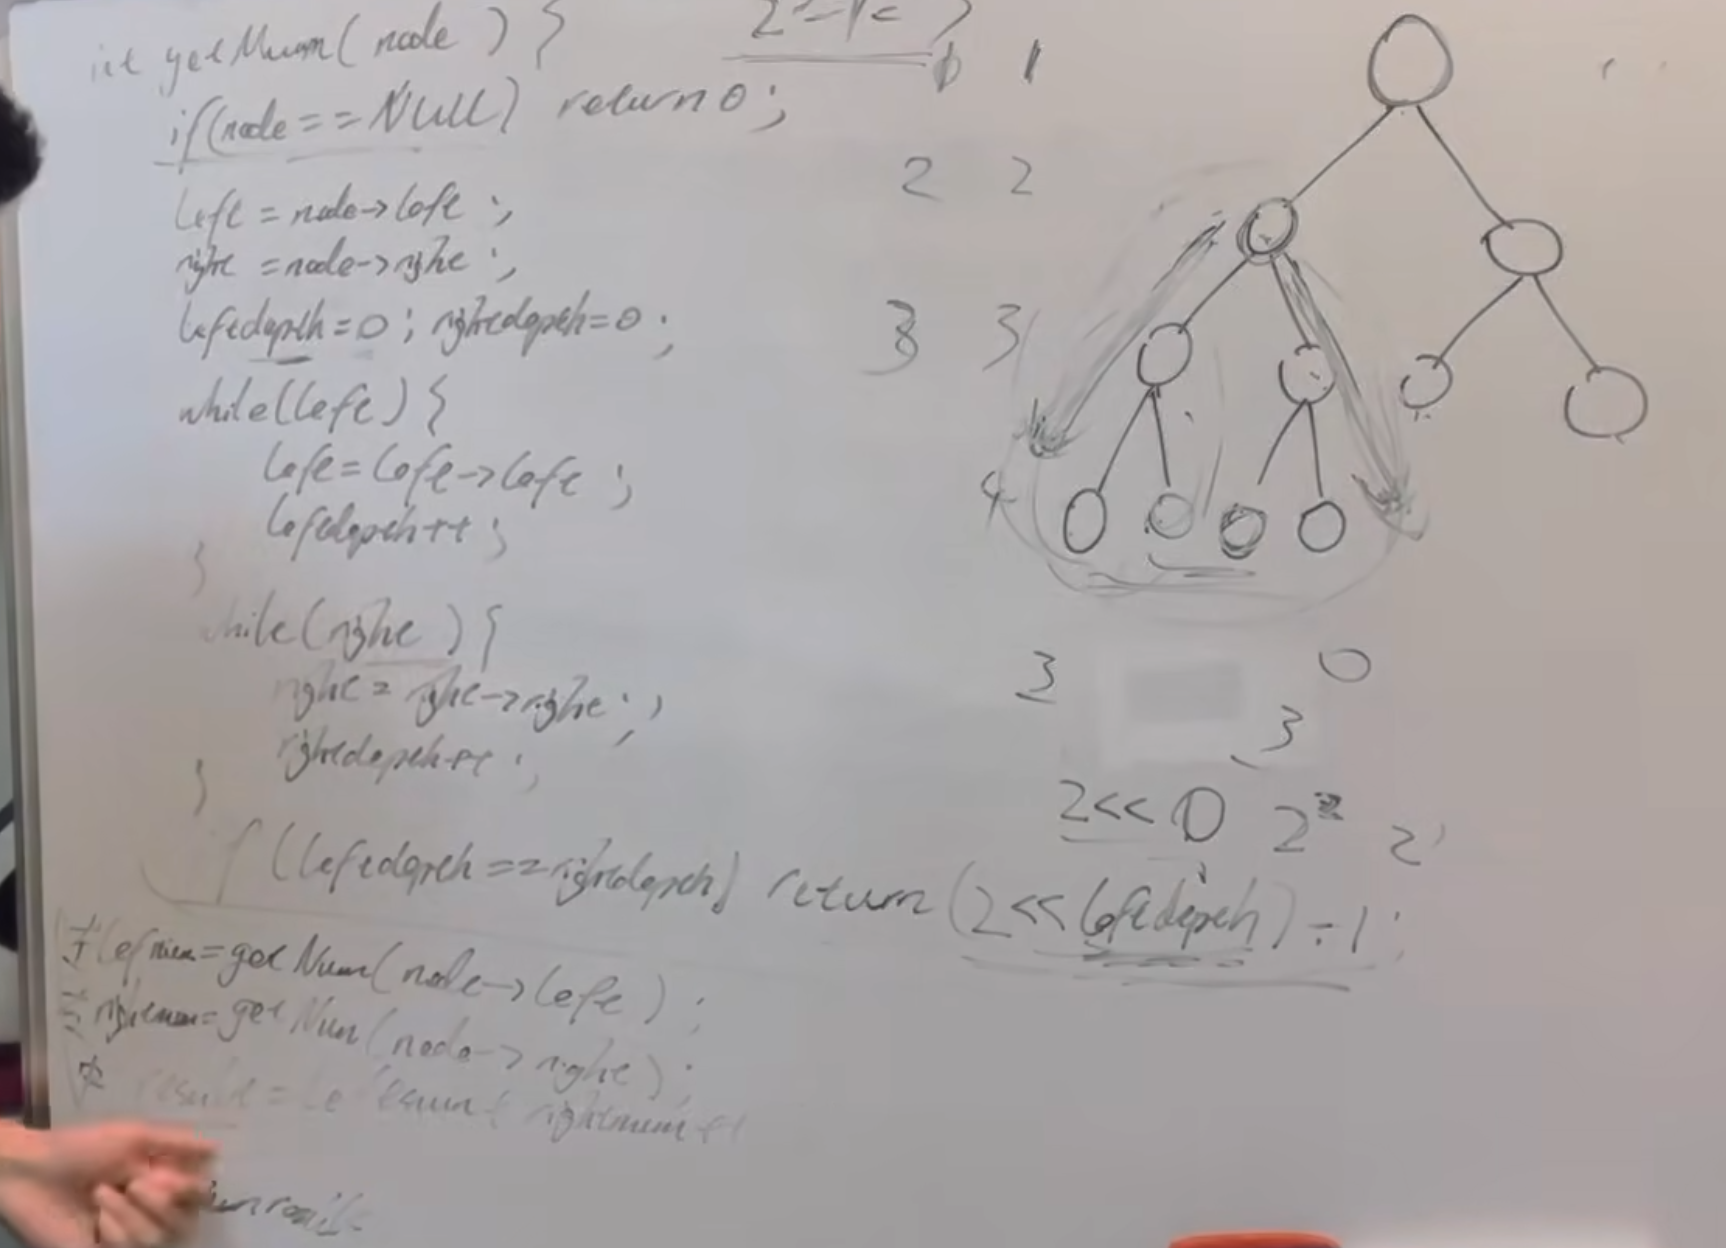 int getNum(node) {
if(node==NULL) return 0;
left = node->left;
right = node->right;
leftdepth=0; rightdepth=0;
while(left) {
left = left->left;
leftdepth++;
}
while(right) {
right = right->right;
rightdepth++;
}
if (leftdepth==rightdepth) return (2<<leftdepth)-1;
leftnum=getNum(node->left);
rightnum=getNum(node->right);
result = leftnum+rightnum+1
result
1
2 2
3 3
4
3 0
3
2<<0 2 2¹